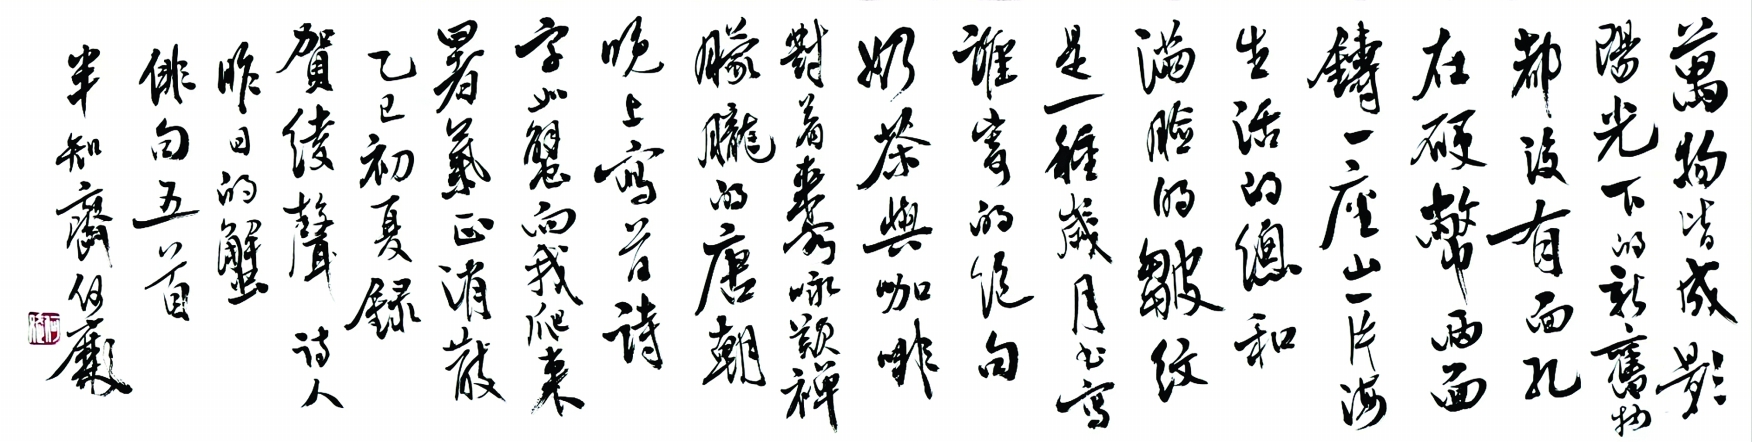 萬物皆成影
陽光下的新舊物
都没有面孔
在硬幣兩面
鑄一座山一片海
生活的總和
滿臉的皺紋
是一種歲月书寫
誰寄的絕句
奶茶與咖啡
對着裊裊咏歎禪
朦朧的唐朝
晚上寫首詩
字如蟹向我爬來
暑氣正消散
乙巳初夏録
賀綾聲 诗人
昨日的蟹
俳句五首
半知齋何